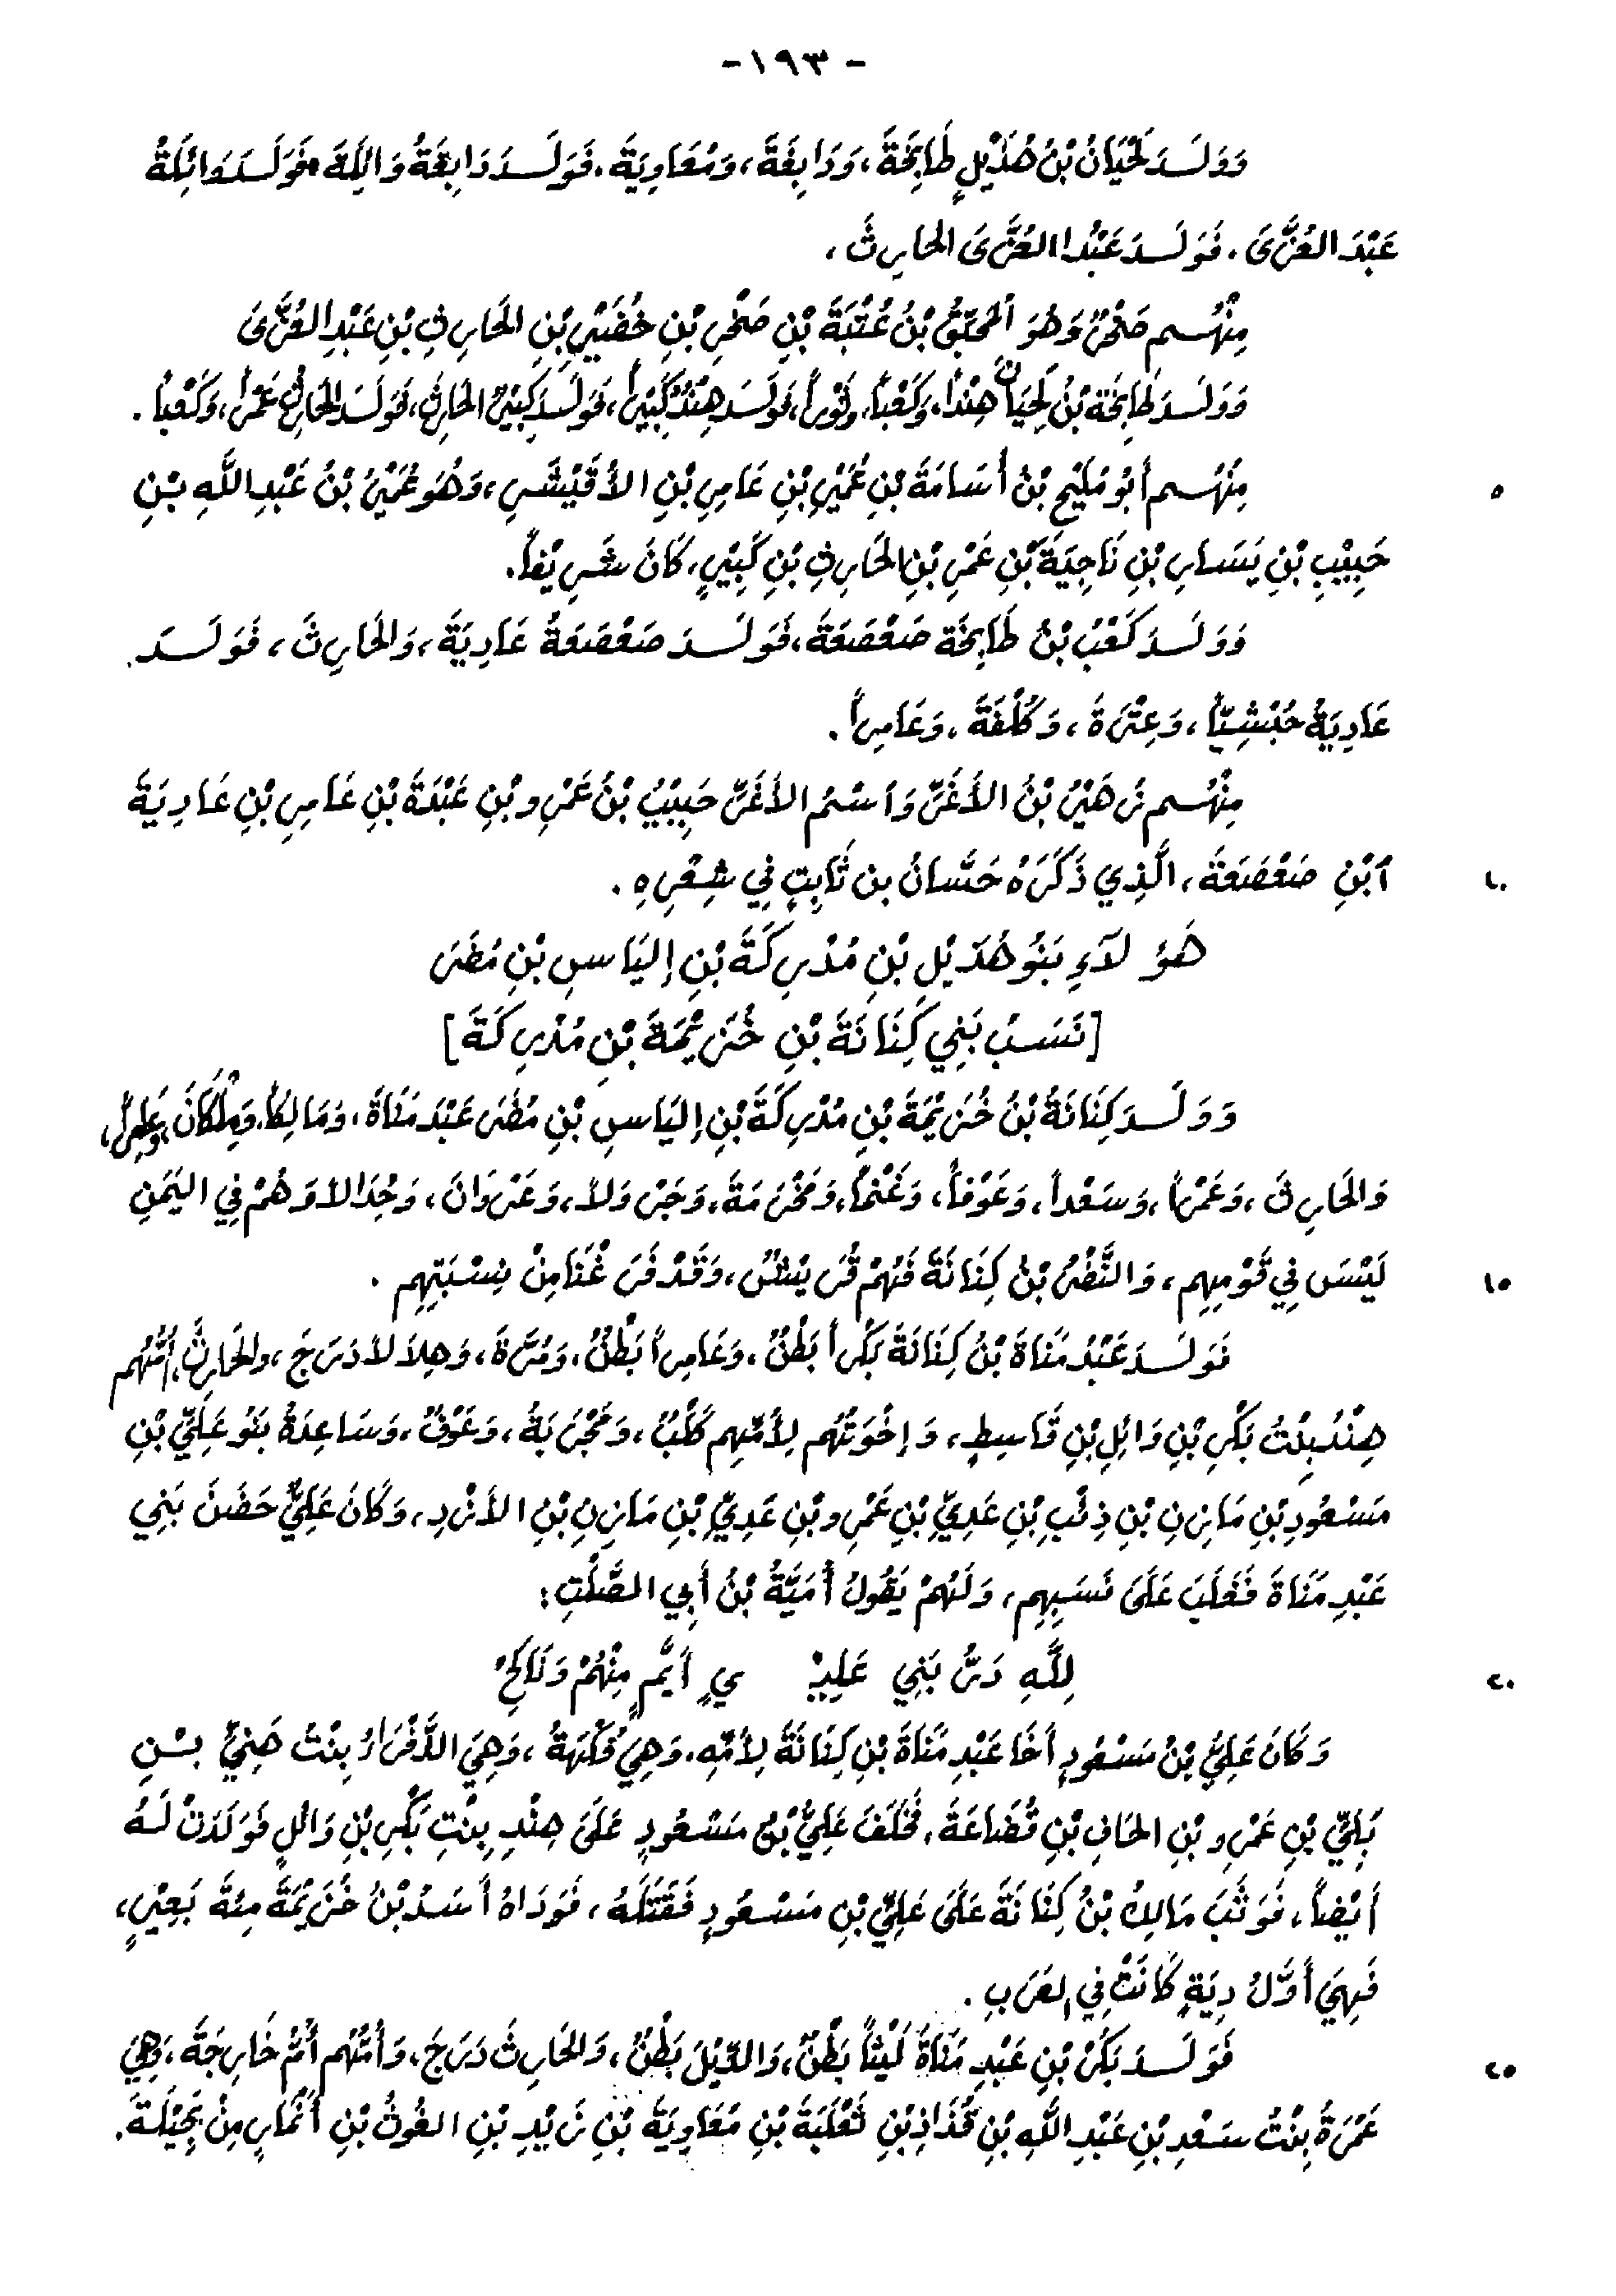 -١٩٣-
وَوَلَدَ لَحْيَانُ بْنُ هُذَيْلٍ طَابِخَةَ، وَدَابِغَةَ، وَمُعَاوِيَةَ. فَوَلَدَ دَابِغَةُ وَائِلَةَ فَوَلَدَ وَائِلَةُ
عَبْدَ العُزَّىَ. فَوَلَدَ عَبْدُ العُزَّىَ الحَارِثَ،
مِنْهُم صَخْرٌ وَهُوَ المُحَبِّقُ بْنُ عُتْبَةَ بْنِ صَخْرِ بْنِ خُضَيْرِ بْنِ الحَارِثِ بْنِ عَبْدِ العُزَّىَ
وَوَلَدَ طَابِخَةُ بْنُ لَحْيَانَ هِنْداً، وَكَعْباً، وَثَوْراً، فَوَلَدَ هِنْدٌ كَبِيْراً، فَوَلَدَ كَبِيْرٌ الحَارِثَ، فَوَلَدَ الحَارِثُ عَمْراً، وَكَعْباً.
٥ مِنْهُم أَبُو مُلَيْحِ بْنُ أُسَامَةَ بْنِ عُمَيْرِ بْنِ عَامِرِ بْنِ الأُقَيْشِرِ، وَهُوَ عُمَيْرُ بْنُ عَبْدِ اللَّهِ بْنِ
حَبِيْبِ بْنِ يَسَارِ بْنِ نَاجِيَةَ بْنِ عَمْرِ بْنِ الحَارِثِ بْنِ كَبِيْرٍ، كَانَ شَرِيْفاً.
وَوَلَدَ كَعْبُ بْنُ طَابِخَةَ صَعْصَعَةَ، فَوَلَدَ صَعْصَعَةُ عَادِيَةَ، وَالحَارِثَ، فَوَلَدَ
عَادِيَةُ حُبْشِيّاً، وَعِتْرَةَ، وَكُلْفَةَ، وَعَامِراً.
مِنْهُم زُهَيْرُ بْنُ الأَغَرِّ وَاسْمُ الأَغَرِّ حَبِيْبُ بْنُ عَمْرِو بْنِ عَبْدَةَ بْنِ عَامِرِ بْنِ عَادِيَةَ
١٠ ابْنِ صَعْصَعَةَ، الَّذِي ذَكَرَهُ حَسَّانُ بن ثَابِتٍ فِي شِعْرِهِ.
هَؤُلَاءِ بَنُو هُذَيْلِ بْنِ مُدْرِكَةَ بْنِ إِليَاسِ بْنِ مُضَرَ
[نَسَبُ بَنِي كِنَانَةَ بْنِ خُزَيْمَةَ بْنِ مُدْرِكَةَ]
وَوَلَدَ كِنَانَةُ بْنُ خُزَيْمَةَ بْنِ مُدْرِكَةَ بْنِ إِليَاسِ بْنِ مُضَرَ عَبْدَ مَنَاةَ، وَمَالِكاً، وَمِلْكَانَ، وَعَامِراً،
وَالحَارِثَ، وَعَمْراً، وَسَعْداً، وَعَوْفاً، وَغَنْماً، وَمَخْرَمَةَ، وَجَرْوَلاً، وَغَزْوَانَ، وَحُدَالاً وَهُمْ فِي اليَمَنِ
١٥ لَيْسَ فِي قَوْمِهِم، وَالنَّضْرُ بْنُ كِنَانَةَ فَهُمْ قُرَيْشٌ، وَقَدْ فَرَغْنَا مِنْ نِسْبَتِهِم.
فَوَلَدَ عَبْدُ مَنَاةَ بْنُ كِنَانَةَ بَكْراً بَطْنٌ، وَعَامِراً بَطْنٌ، وَمُرَّةَ، وَهِلاَلاً دَرَجَ، وَالحَارِثَ، أُمُّهُم
هِنْدُ بِنْتُ بَكْرِ بْنِ وَائِلِ بْنِ قَاسِطٍ، وَإِخْوَتُهُم لِأُمِّهِم كَلْبٌ، وَمَجْرَبَةُ، وَعَوْفٌ، وَسَاعِدَةُ بَنُو عَلِيِّ بْنِ
مَسْعُودِ بْنِ مَازِنِ بْنِ ذِئْبِ بْنِ عَدِيِّ بْنِ عَمْرِو بْنِ عَدِيِّ بْنِ مَازِنِ بْنِ الأَزْدِ، وَكَانَ عَلِيٌّ حَضَنَ بَنِي
عَبْدِ مَنَاةَ فَغَلَبَ عَلَىَ نَسَبِهِم، وَلَهُمْ يَقُولُ أُمَيَّةُ بْنُ أَبِي الصَّلْتِ:
٢٠ لِلَّهِ دَرُّ بَنِي عَلِيْـ ـيٍ أَيِّمٍ مِنْهُمْ وَنَاكِحْ
وَكَانَ عَلِيُّ بْنُ مَسْعُودٍ أَخَا عَبْدِ مَنَاةَ بْنِ كِنَانَةَ لِأُمِّهِ، وَهِيَ فُكَيْهَةُ، وَهِيَ الذَّفْرَاءُ بِنْتُ هَنِيِّ بْنِ
بَلِيِّ بْنِ عَمْرِو بْنِ الحَافِ بْنِ قُضَاعَةَ، فَخَلَفَ عَلِيُّ بْنُ مَسْعُودٍ عَلَىَ هِنْدِ بِنْتِ بَكْرِ بْنِ وَائِلٍ فَوَلَدَتْ لَهُ
أَيْضاً، فَوَثَبَ مَالِكُ بْنُ كِنَانَةَ عَلَىَ عَلِيِّ بْنِ مَسْعُودٍ فَقَتَلَهُ، فَوَدَاهُ أَسَدُ بْنُ خُزَيْمَةَ مِئَةَ بَعِيْرٍ،
فَهِيَ أَوَّلُ دِيَةٍ كَانَتْ فِي العَرَبِ.
٢٥ فَوَلَدَ بَكْرُ بْنِ عَبْدِ مَنَاةَ لَيْثاً بَطْنٌ، وَالدِّيْلَ بَطْنٌ، وَالحَارِثَ دَرَجَ، وَأُمُّهُم أُمُّ خَارِجَةَ، وَهِيَ
عَمْرَةُ بِنْتُ سَعْدِ بْنِ عَبْدِ اللَّهِ بْنِ قُذَاذِ بْنِ ثَعْلَبَةَ بْنِ مُعَاوِيَةَ بْنِ زَيْدِ بْنِ الغَوثِ بْنِ أَنْمَارٍ مِنْ بَجِيْلَةَ.